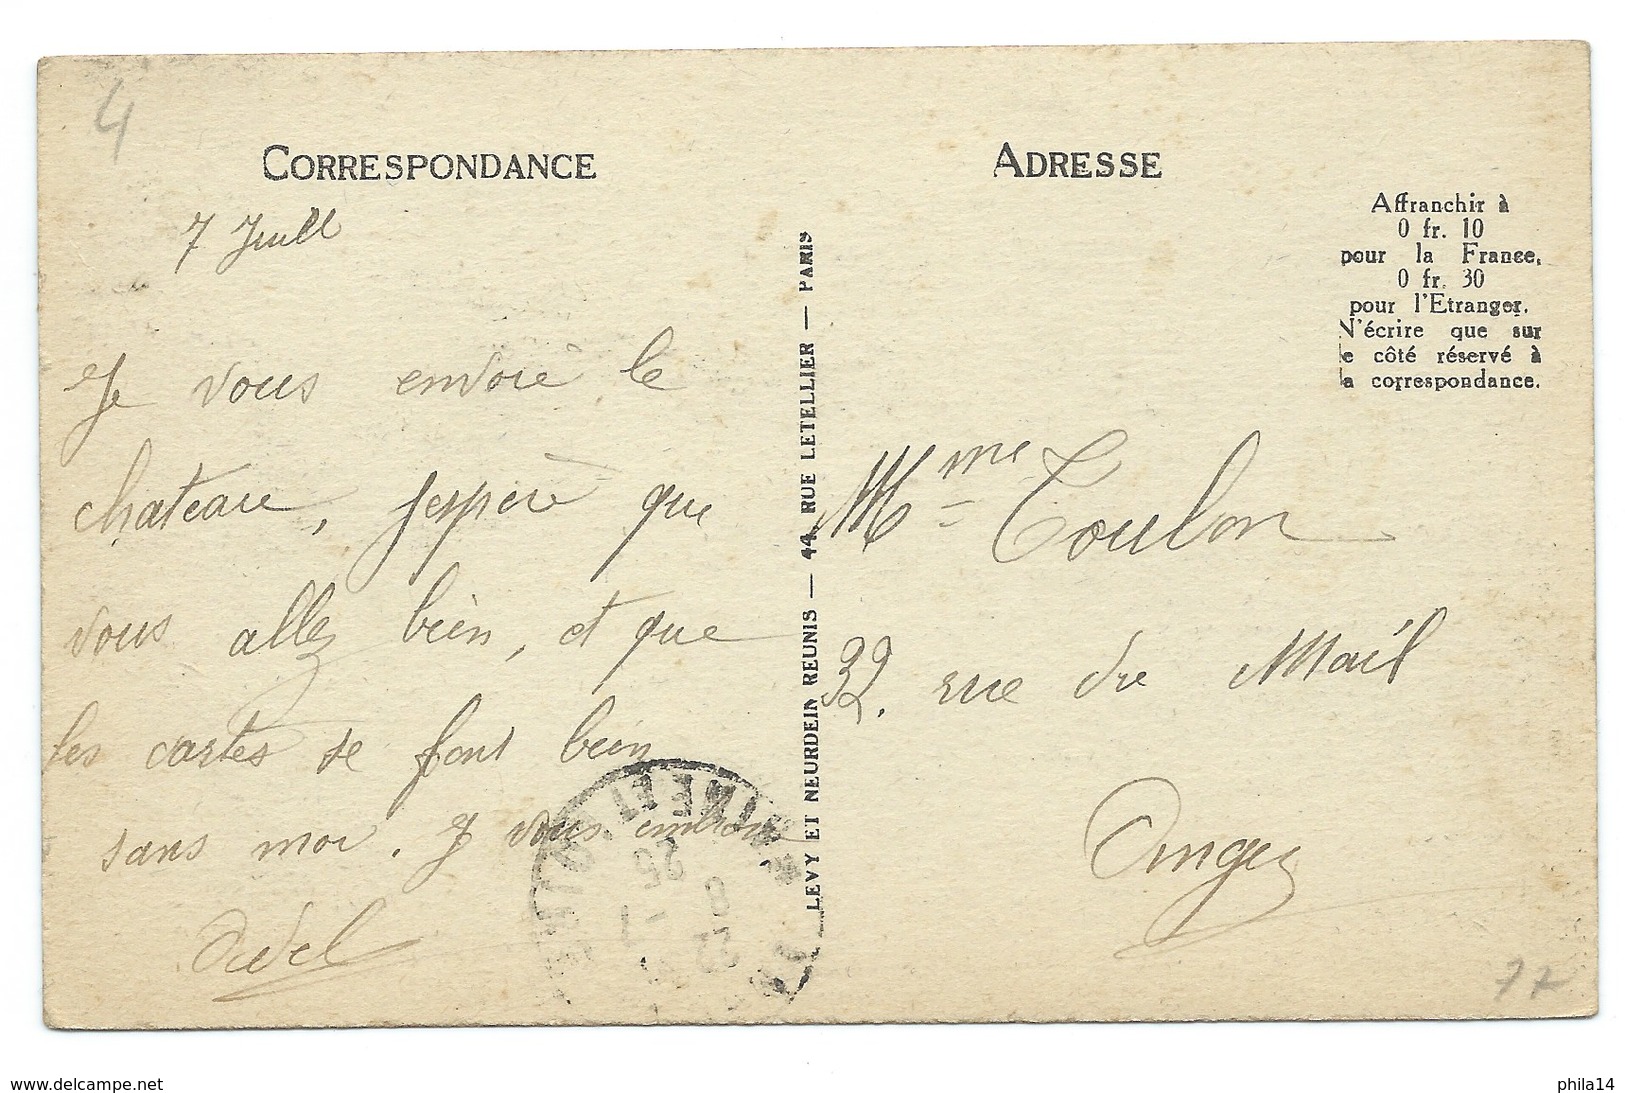 4
CORRESPONDANCE
7 Juill
Je vous envoie le
chateau, jespère que
vous allez bien, et que
les cartes se font bien
sans moi. Je vous embrasse
LEVY ET NEURDEIN REUNIS — 44, RUE LETELLIER — PARIS
ADRESSE
Affranchir à
0 fr. 10
pour la France,
0 fr. 30
pour l'Etranger.
N'écrire que sur
e côté réservé à
la correspondance.
Mme Toulon
32. rue du Mail
Angers
SEINE ET
25
77
www.delcampe.net
phila14